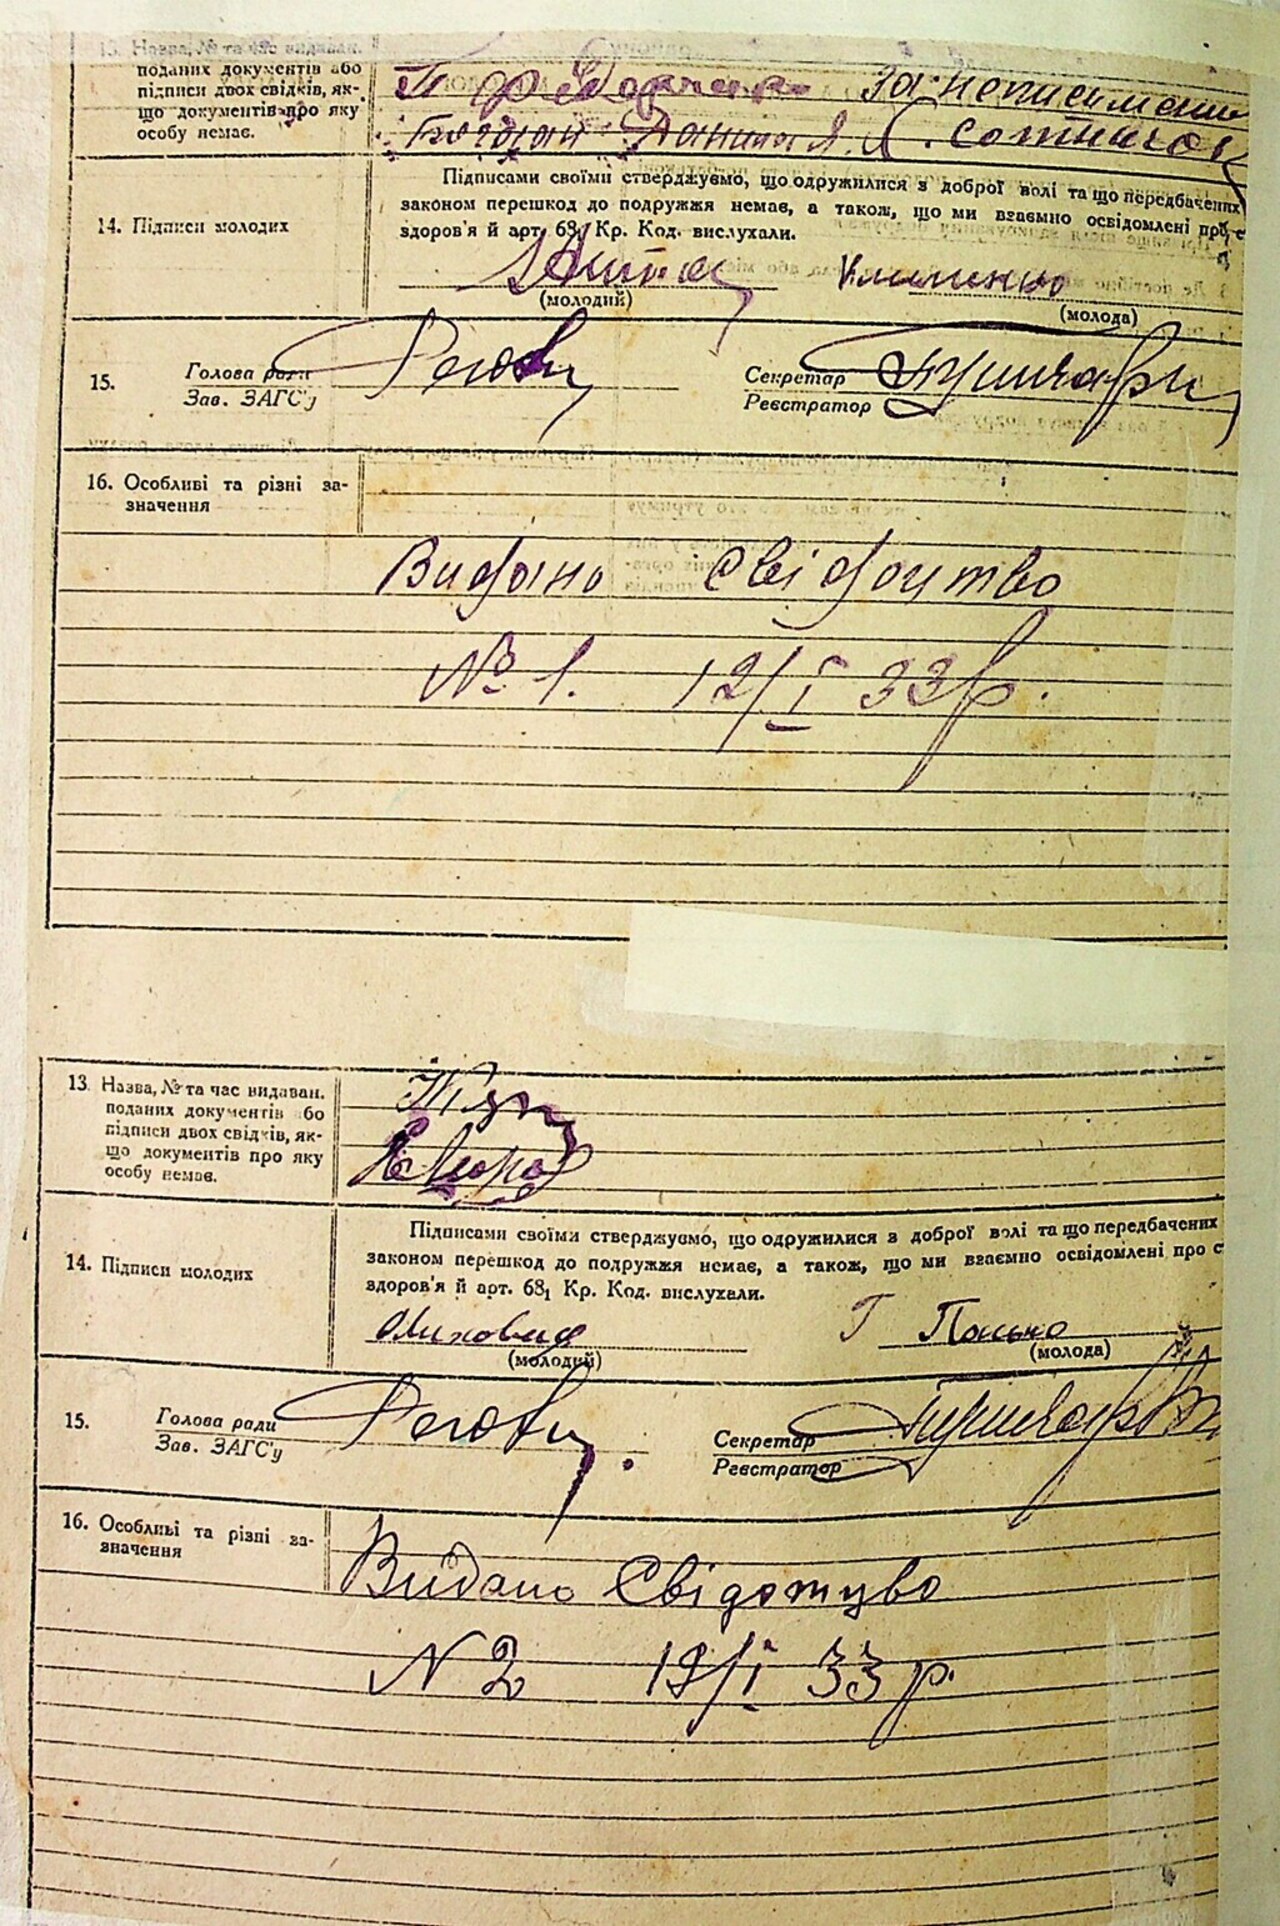 13. Назва, № та час видаван.
поданих документів або
підписи двох свідків, як-
що документів про яку
особу немає.
За неписьменн
Богдан Данила Я. Л. Сотников
Підписами своїми стверджуємо, що одружилися з доброї волі та що передбачених
законом перешкод до подружжя немає, а також, що ми взаємно освідомлені про с
здоров'я й арт. 68₁ Кр. Код. вислухали.
14. Підписи молодих
Клименко
(молодий) (молода)
15. Голова ради Секретар
Зав. ЗАГС'у Реєстратор
16. Особливі та різні за-
значення
Видано Свідоцтво
№ 1. 12/I 33 р.
13. Назва, № та час видаван.
поданих документів або
підписи двох свідків, як-
що документів про яку
особу немає.
Підписами своїми стверджуємо, що одружилися з доброї волі та що передбачених
законом перешкод до подружжя немає, а також, що ми взаємно освідомлені про с
здоров'я й арт. 68₁ Кр. Код. вислухали.
14. Підписи молодих
(молодий) (молода)
15. Голова ради Секретар
Зав. ЗАГС'у Реєстратор
16. Особливі та різні за-
значення
Видано Свідотцво
N 2 19/I 33 р.